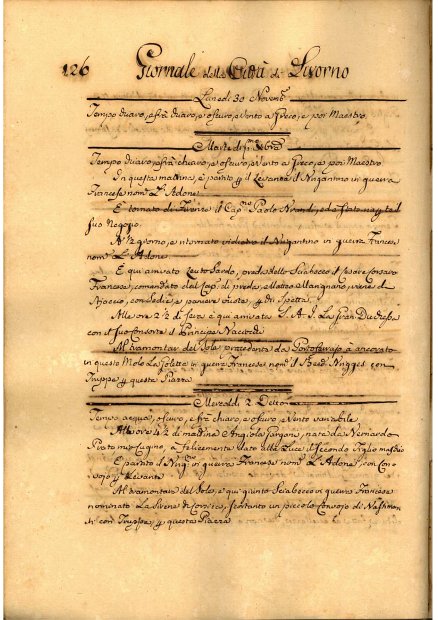 126 Giornale della Città di Livorno
Lunedi 30 Novemb
Tempo Chiaro, e frà Chiaro, e oscuro, e Vento a Greco, e per Maestro
Martedi p.mo Xbre
Tempo Chiaro, e frà chiaro, e oscuro, e Vento a Greco, e per Maestro
In questa mattina, è partito p il Levante il Brigantino in guerra
Francese nom.o L'Adone
È tornato di Firenze il Cap.no Paolo
suo Negozio.
A 12 giorno, è ritornato indietro il Brigantino in guerra Francese
nom.o L'Adone
È qui arrivato Leuto Sardo, predato dallo Sciabecco il Cesare Corsaro
Francese, comandato dal Cap. di preda, e Matteo viene d
Ajaccio, con Sedie, e paniere vuote, p di Spetta
Alle ore 2½ di sera è qui arrivata S. A. I. La Gran Duchessa
con il suo Consorte il Principe
Al tramontar del Sole proceduta da Portoferrajo è ancorata
in questo Molo La Goletta in guerra Francese nom.a il con
Truppe p questa Piazza
Mercoledi 2 Detto
Tempo acqua, oscuro, e frà chiaro, e oscuro, e Vento variabile
Alle ore 4½ di mattina e Angiola nata da Bernardo
Prato mio Cugino, à felicemente dato alla Luce il Secondo Figlio maschio
È partito il Brig.no in guerra Francese nom.o L'Adone, con Con-
vojo p Levante
Al tramontare del Sole, è qui giunto Sciabecco in guerra Francese
nominato La Sirena di Corsica, scortante un piccolo Convojo di Bastimen-
ti con Truppe, p questa Piazza